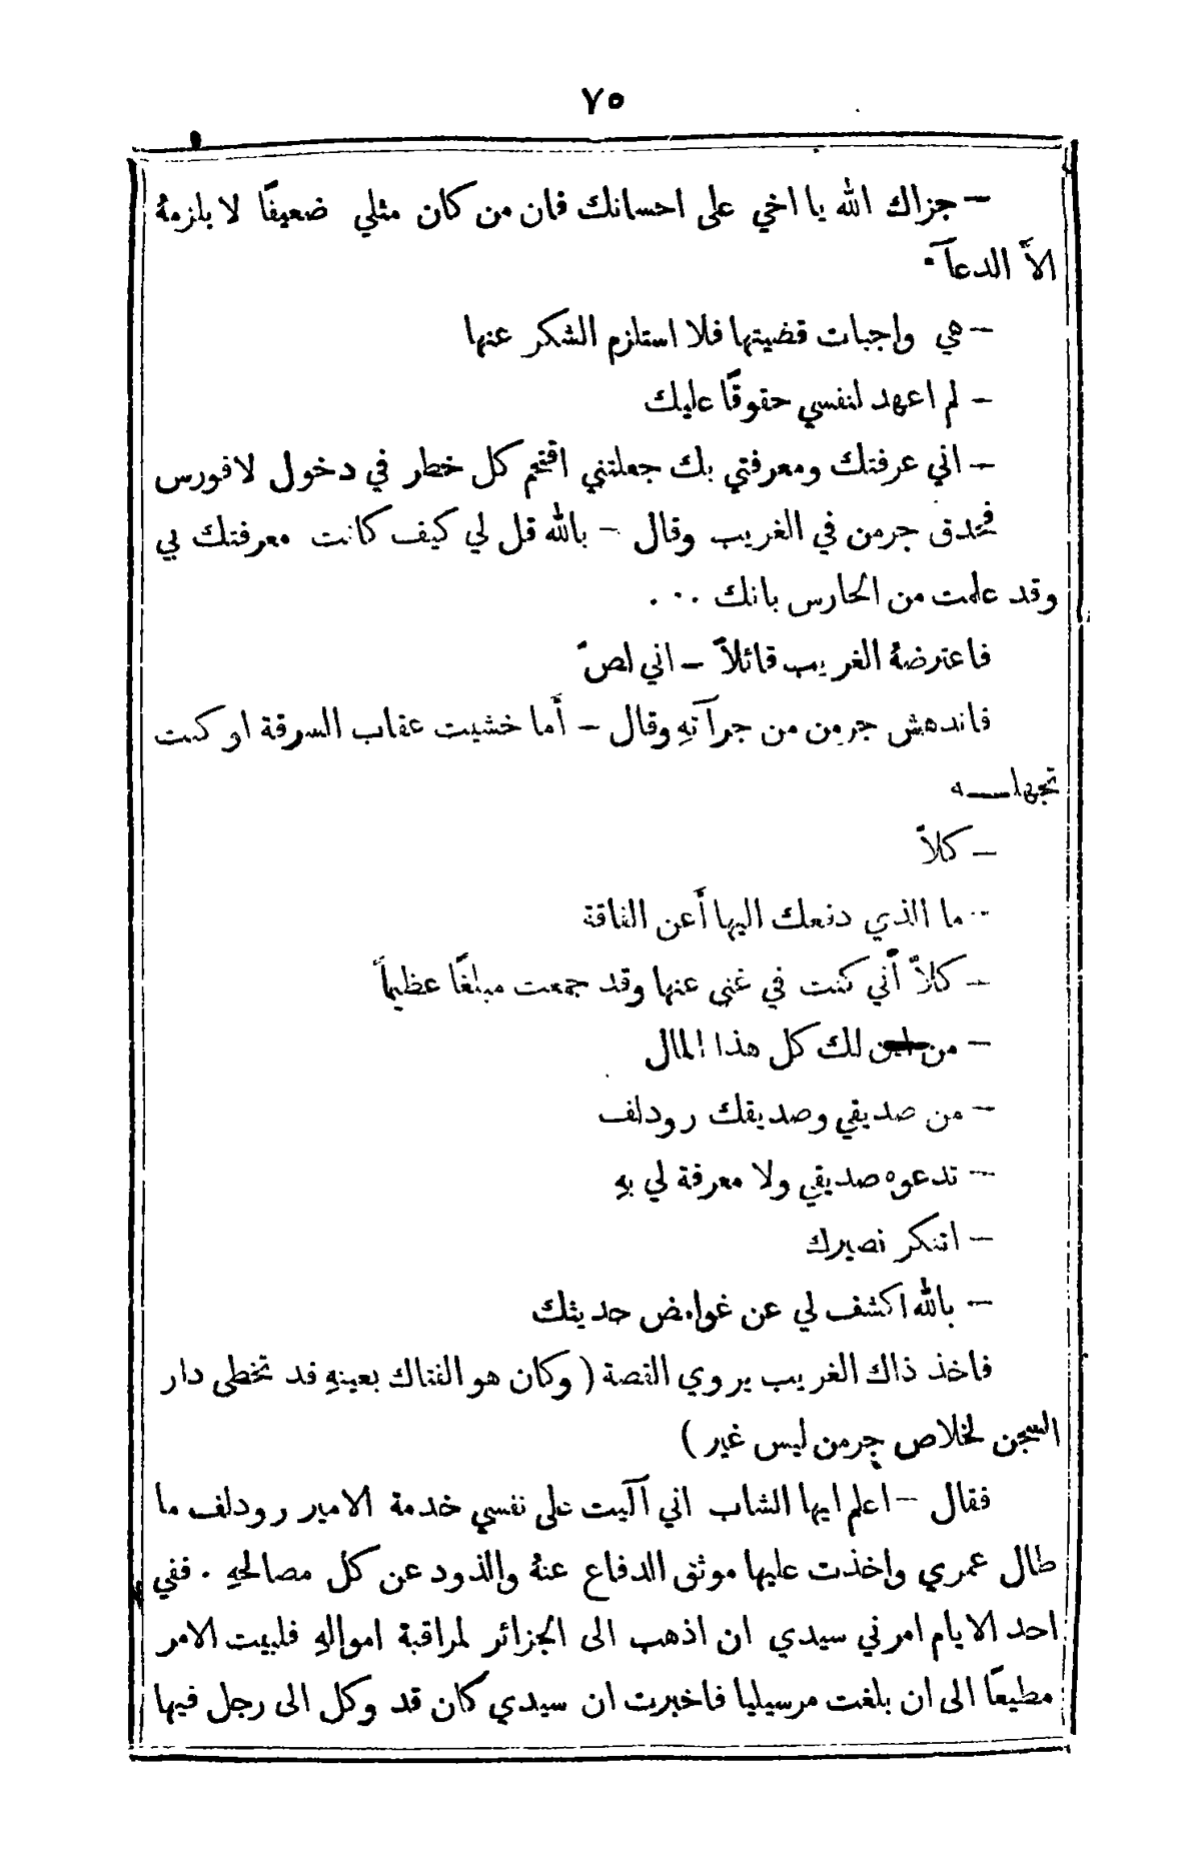 ٧٥
– جزاك الله يا اخي على احسانك فان من كان مثلي ضعيفًا لا يلزمهُ
الاَّ الدعآء
– هي واجبات قضيتها فلا استلزم الشكر عنها
– لم اعهد لنفسي حقوقًا عليك
– اني عرفتك ومعرفتي بك جعلتني اقتحم كل خطر في دخول لافورس
فحدق جرمن في الغريب وقال – بالله قل لي كيف كانت معرفتك بي
وقد علمت من الحارس بانك ...
فاعترضهُ الغريب قائلاً – اني لصّ
فاندهش جرمن من جرآتهِ وقال – أما خشيت عقاب السرقة او كنت
تجهلـــه
– كلاَّ
– ما الذي دفعك اليها أعن الفاقة
– كلاَّ أني كنت في غنى عنها وقد جمعت مبلغًا عظيماً
– من اين لك كل هذا المال
– من صديقي وصديقك رودلف
– تدعوه صديقي ولا معرفة لي بهِ
– اتنكر نصيرك
– بالله اكشف لي عن غوامض حديثك
فاخذ ذاك الغريب يروي القصة ( وكان هو الفتاك بعينهِ قد تخطى دار
السجن لخلاص جرمن ليس غير )
فقال – اعلم ايها الشاب اني آليت على نفسي خدمة الامير رودلف ما
طال عمري واخذت عليها موثق الدفاع عنهُ والذود عن كل مصالحهِ . ففي
احد الايام امرني سيدي ان اذهب الى الجزائر لمراقبة اموالهِ فلبيت الامر
مطيعًا الى ان بلغت مرسيليا فاخبرت ان سيدي كان قد وكل الى رجل فيها